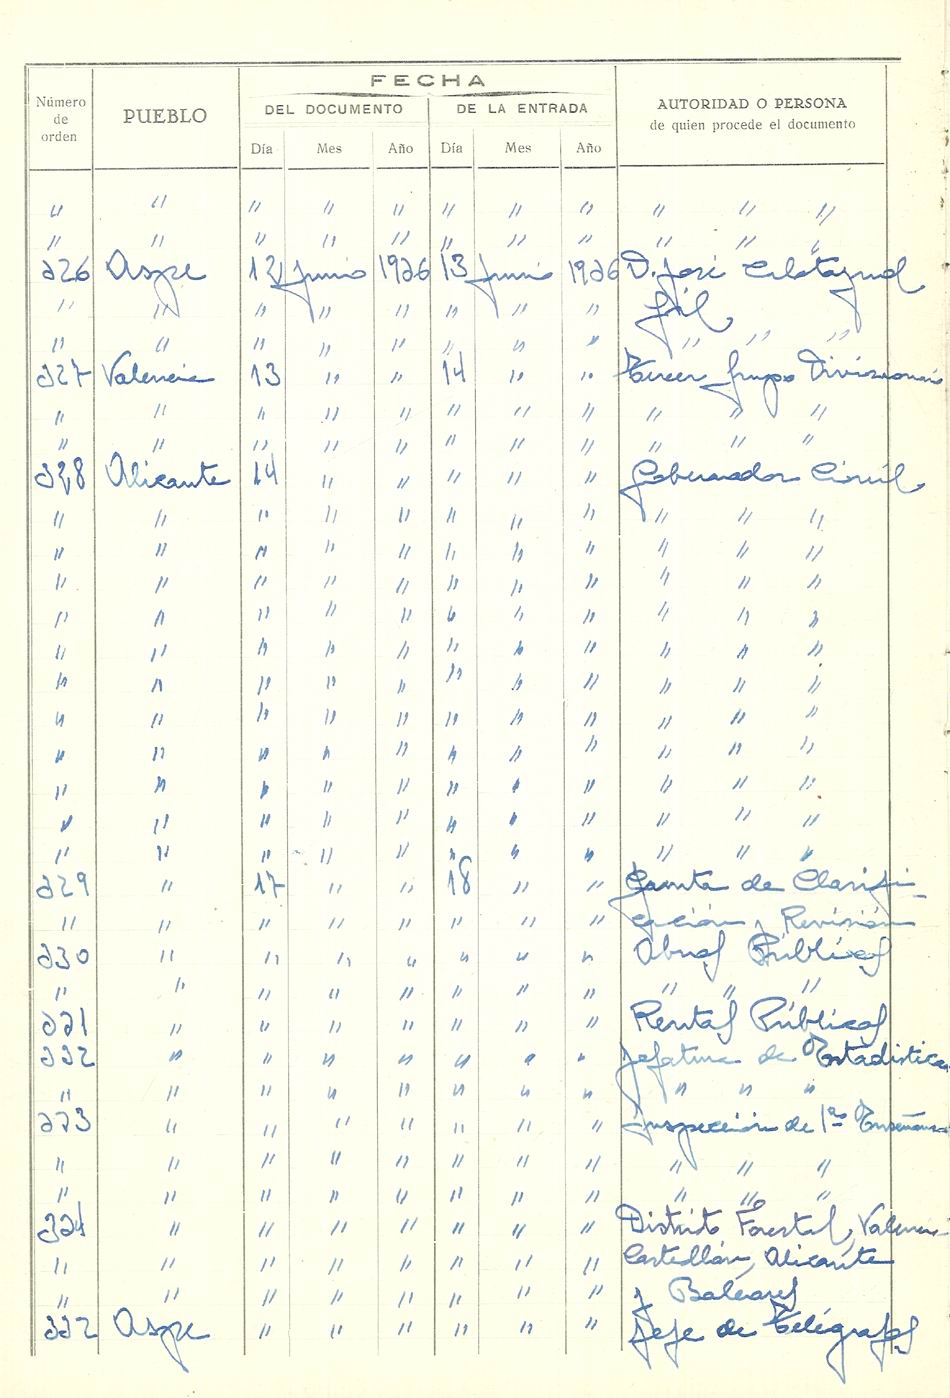 FECHA
Número de orden PUEBLO DEL DOCUMENTO DE LA ENTRADA AUTORIDAD O PERSONA
de quien procede el documento
Día Mes Año Día Mes Año
" " " " " " " " " " "
" " " " " " " " " " "
226 Aspe 12 Junio 1926 13 Junio 1926 D. José
" " " " " " " " Gil
" " " " " " " " " " "
227 Valencia 13 " " 14 " " Tercer Grupo Divisionario
" " " " " " " " " " "
" " " " " " " " " " "
228 Alicante 14 " " " " " Gobernador Civil
" " " " " " " " " " "
" " " " " " " " " " "
" " " " " " " " " " "
" " " " " " " " " " "
" " " " " " " " " " "
" " " " " " " " " " "
" " " " " " " " " " "
" " " " " " " " " " "
" " " " " " " " " " "
" " " " " " " " " " "
" " " " " " " " " " "
229 " 17 " " 18 " " Junta de Clasifi-
" " " " " " " " cación y Revisión
230 " " " " " " " Obras Públicas
" " " " " " " " " " "
231 " " " " " " " Rentas Públicas
232 " " " " " " " Jefatura de Estadistica
" " " " " " " " " " "
233 " " " " " " " Inspección de 1ª Enseñanza
" " " " " " " " " " "
" " " " " " " " " " "
234 " " " " " " " Distrito Forestal, Valencia
" " " " " " " " Castellón, Alicante
" " " " " " " " y Baleares
Aspe " " " " " " Jefe de Telégrafos